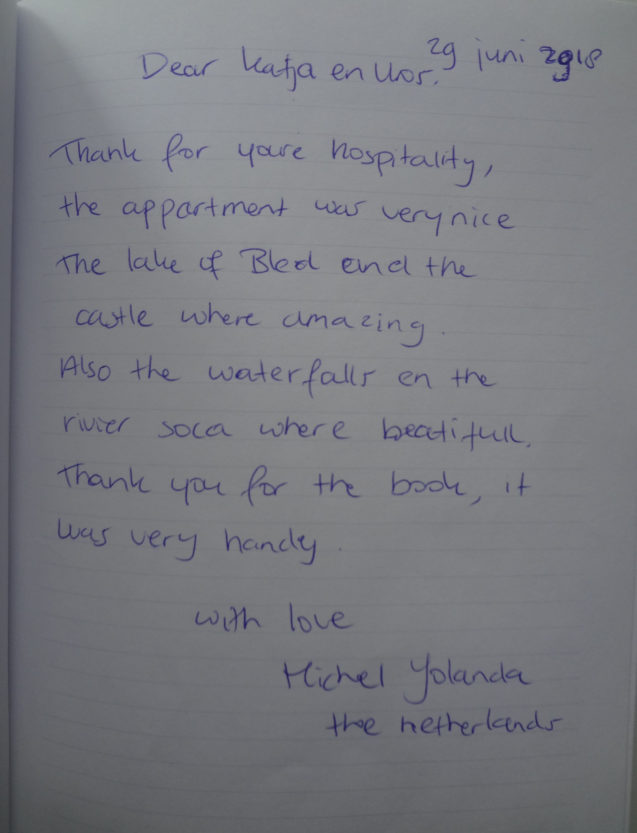 29 juni 2018
Dear Katja en Uros.
Thank for youre hospitality,
the appartment was very nice
The lake of Bled and the
castle where amazing.
Also the waterfalls en the
rivier soca where beatifull.
Thank you for the book, it
was very handy.
with love
Michel Yolanda
the netherlands